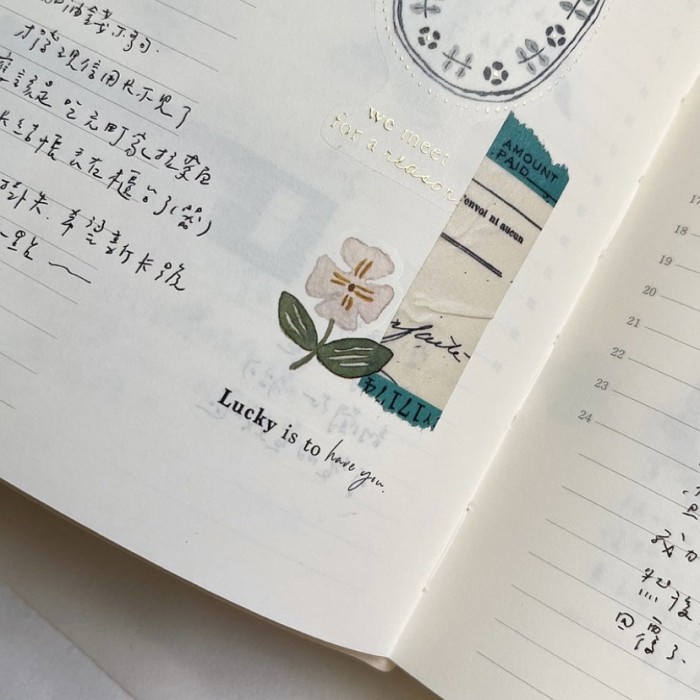 油錢不夠.
才發現信用卡不見了
應該是吃完町家拉麵
結帳丟在櫃台了
卡. 希望新卡
一點
we meet
for a reason
AMOUNT
PAID
envoi ni aucun
17174
Lucky is to have you.
17
18
19
20
21
22
23
24
然後
回覆了.